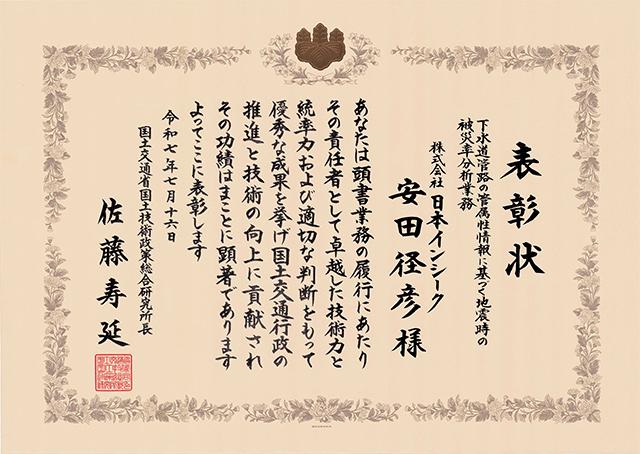 表彰状
下水道管路の管属性情報に基づく地震時の
被災率分析業務
株式会社 日本インシーク
安田径彦様
あなたは頭書業務の履行にあたり
その責任者として卓越した技術力と
統率力および適切な判断をもって
優秀な成果を挙げ国土交通行政の
推進と技術の向上に貢献され
その功績はまことに顕著であります
よってここに表彰します
令和七年七月十六日
国土交通省国土技術政策総合研究所長
佐藤寿延